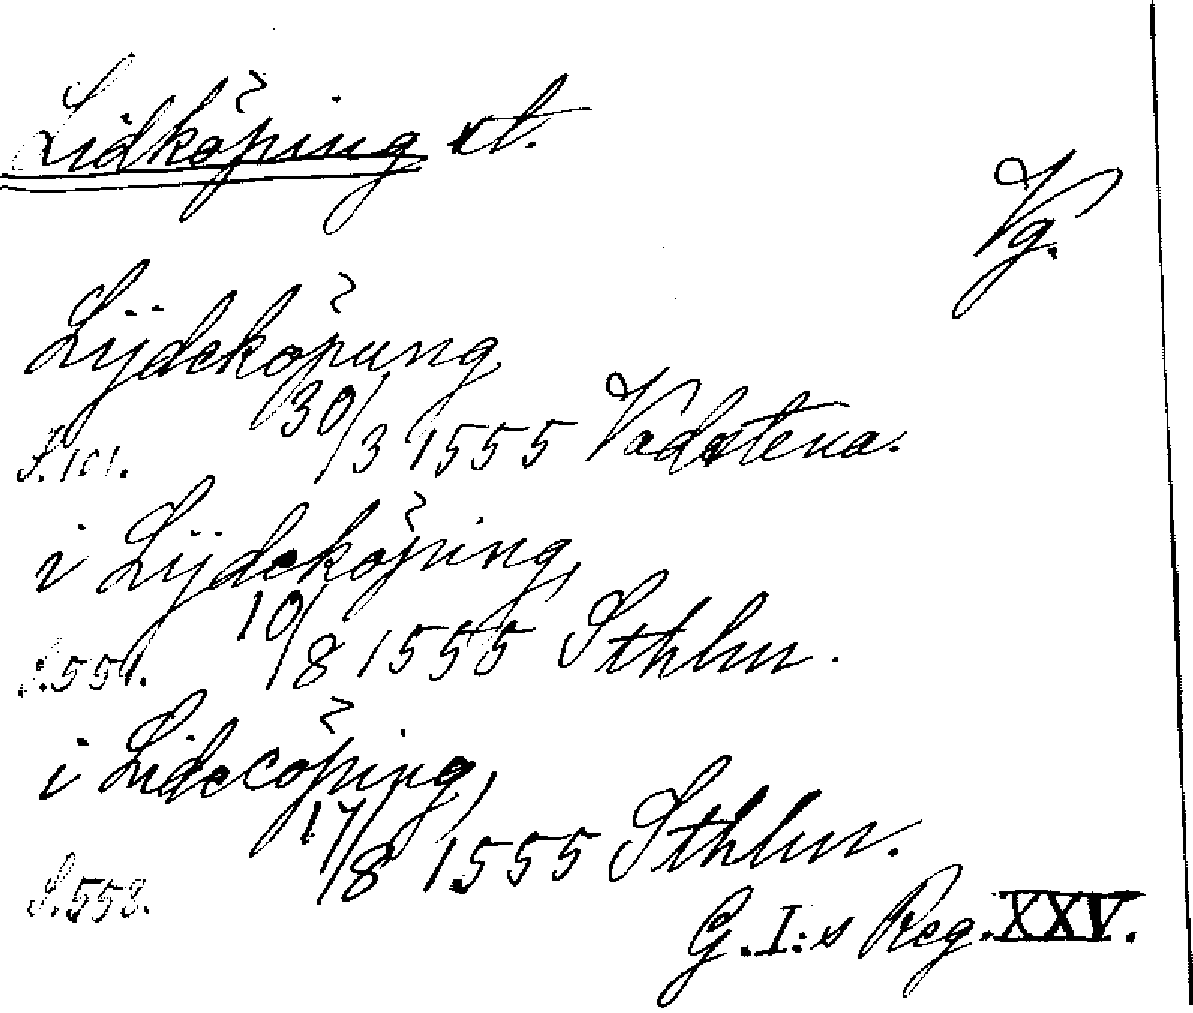 Lidköping st.
Vg.
Lijdeköpung
S. 101. 30/3 1555 Vadstena.
i Lijdeköping,
S. 551. 10/8 1555 Sthlm.
i Lidecöping,
S. 558. 17/8 1555 Sthlm.
G. I:s Reg. XXV.